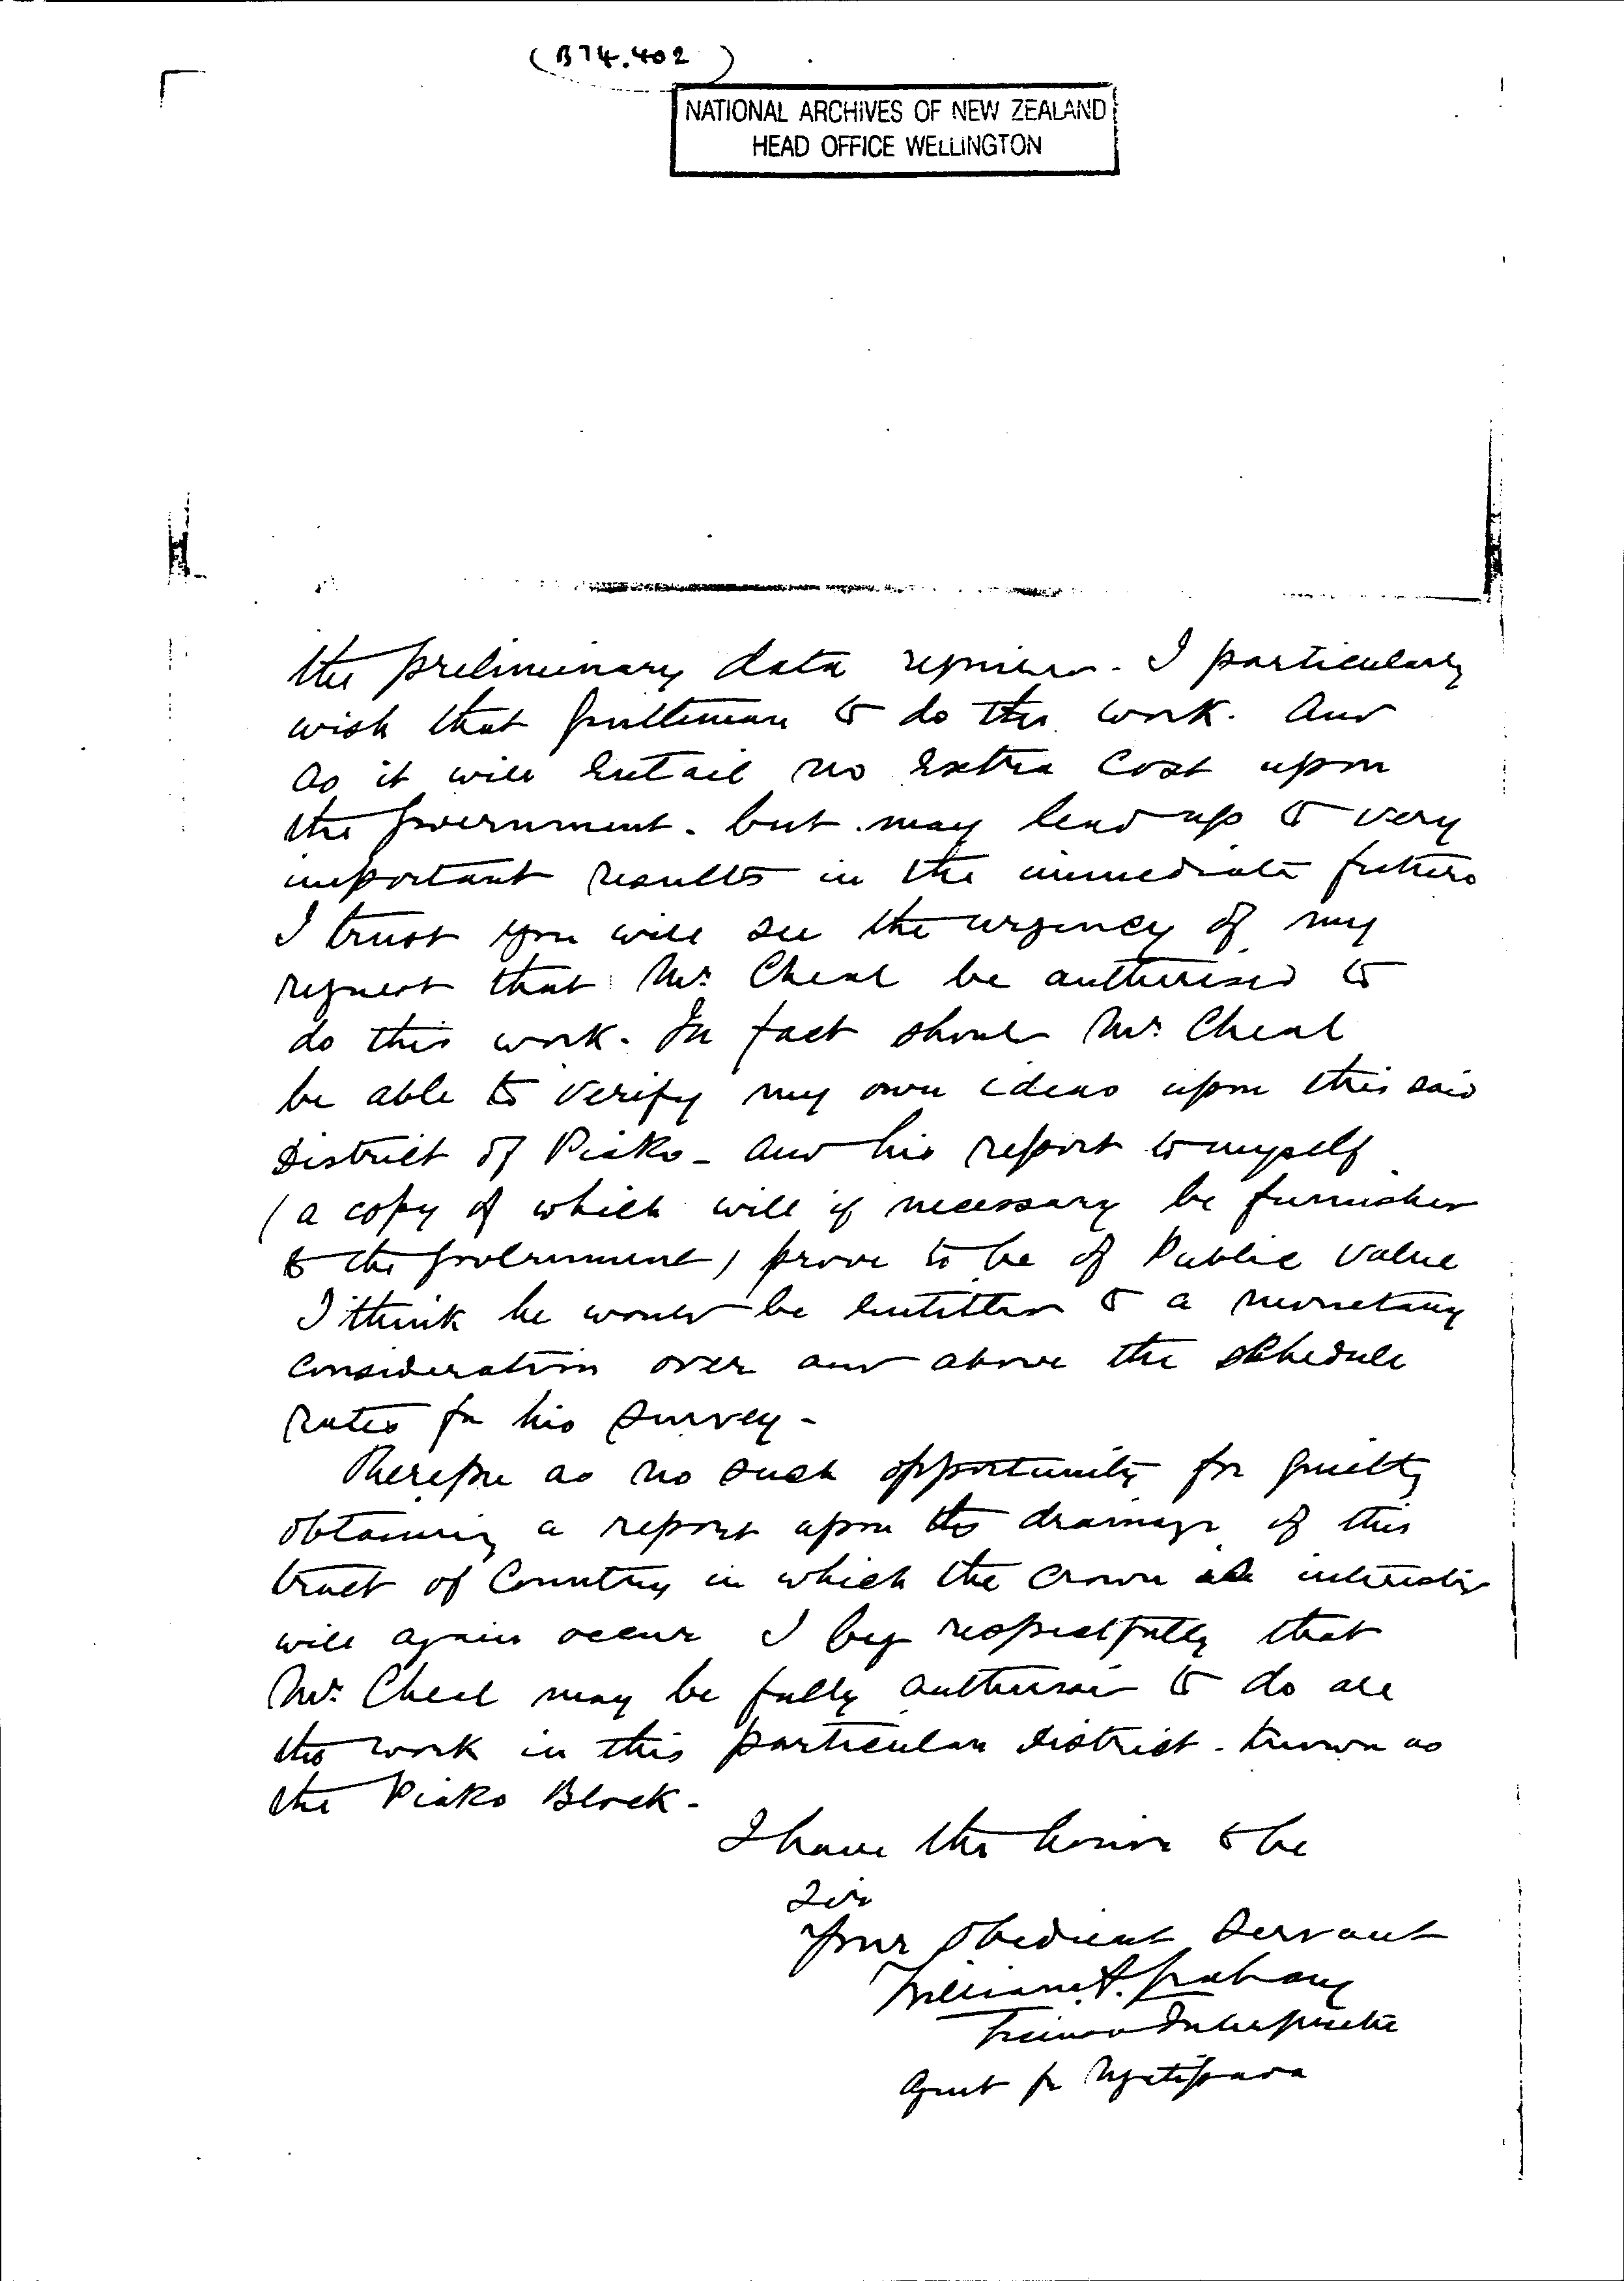 (B74.402)
NATIONAL ARCHIVES OF NEW ZEALAND
HEAD OFFICE WELLINGTON
the preliminary data required. I particularly
wish that gentleman to do the work. And
as it will entail no extra cost upon
the Government. but may lead up to very
important results in the immediate future
I trust you will see the urgency of my
request that Mr. Cheal be authorised to
do this work. In fact should Mr. Cheal
be able to verify my own ideas upon this said
District of Piako - and his report to myself
(a copy of which will if necessary be furnished
to the Government) prove to be of Public value
I think he would be entitled to a monetary
consideration over and above the schedule
rates for his survey -
Therefore as no such opportunity for
obtaining a report upon the drainage of this
tract of Country in which the Crown interested
will again occur I beg respectfully that
Mr. Cheal may be fully authorised to do all
the work in this particular district - known as
the Piako Block -
I have the honor to be
Sir
Your Obedient Servant
William A. Graham
Licensed Interpreter
Agent for Ngatipaoa